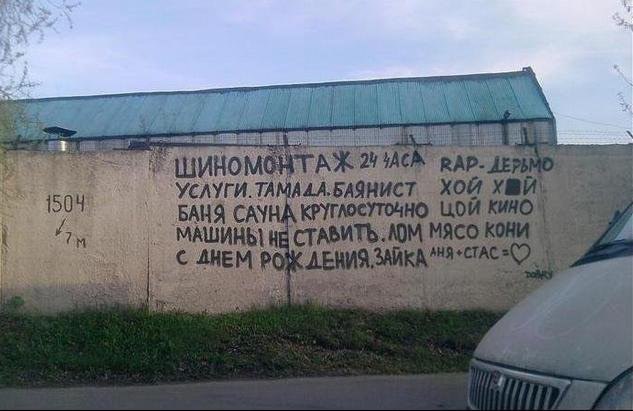 ШИНОМОНТАЖ 24 ЧАСА RAP-ДЕРЬМО
УСЛУГИ.ТАМАДА.БАЯНИСТ ХОЙ Х Й
БАНЯ САУНА КРУГЛОСУТОЧНО ЦОЙ КИНО
МАШИНЫ НЕ СТАВИТЬ. ЛОМ МЯСО КОНИ
С ДНЕМ РОЖДЕНИЯ, ЗАЙКА АНЯ+СТАС=♡
1504
7 М